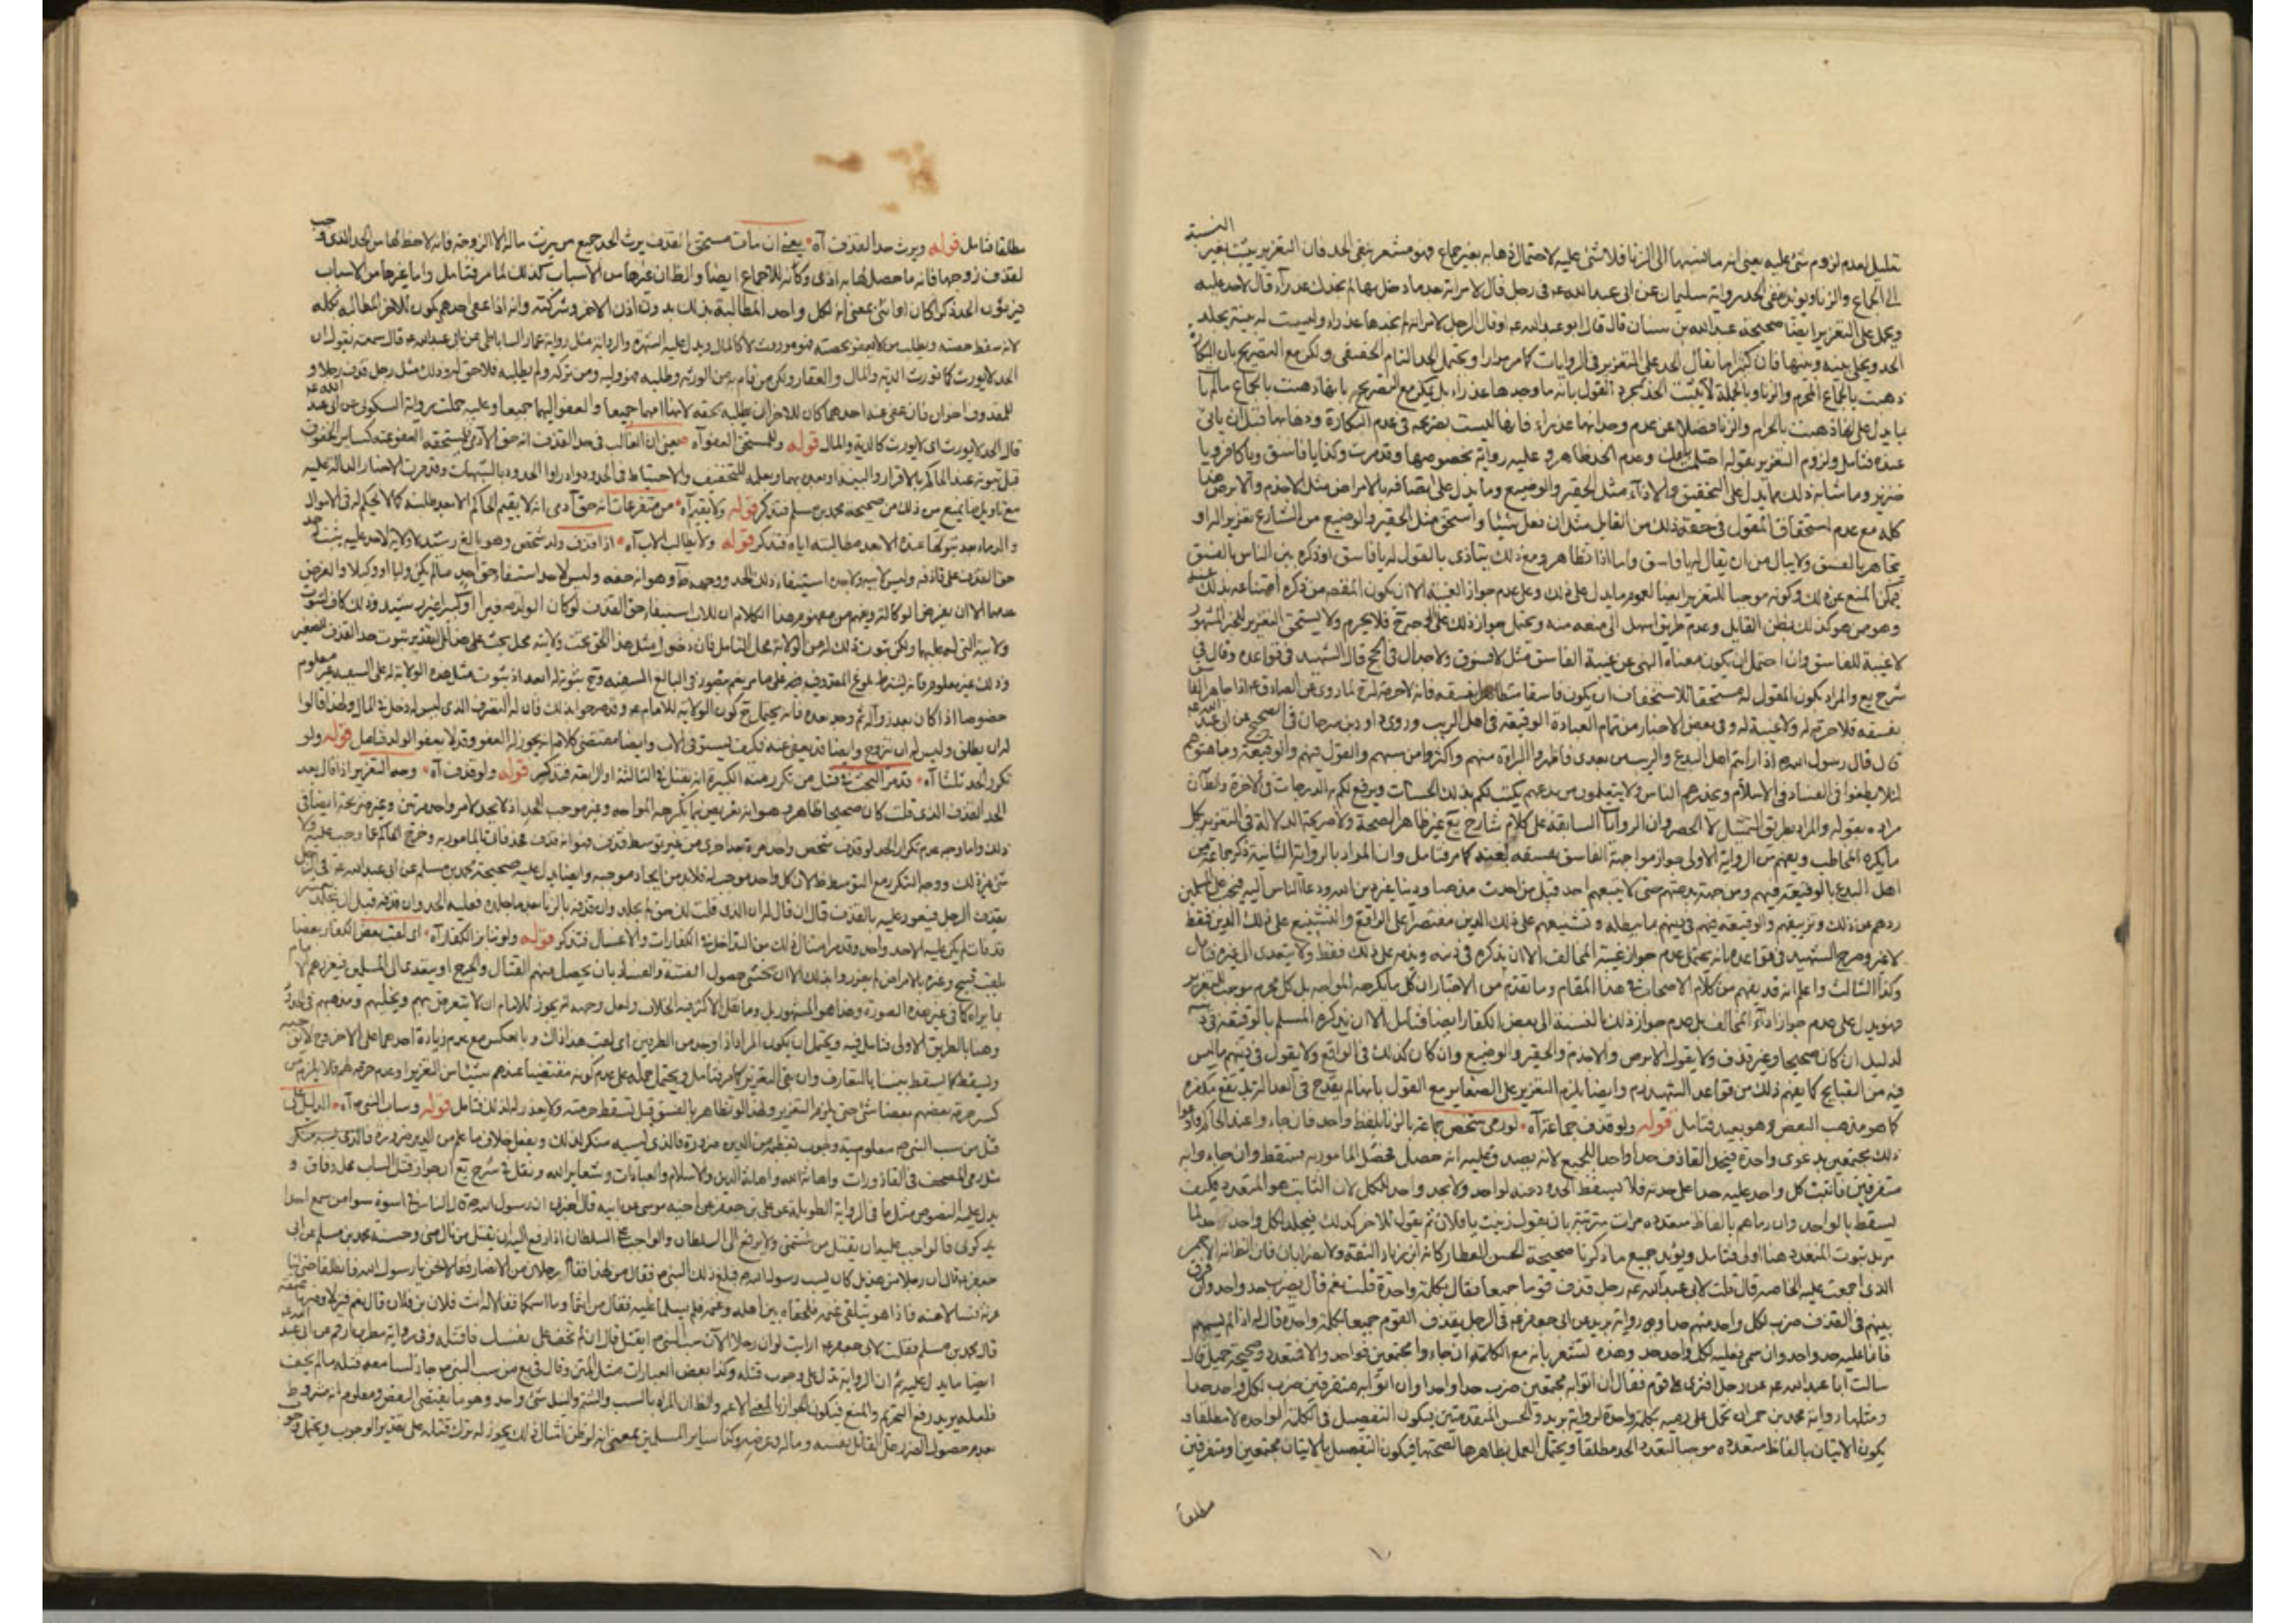 النسبة
تعليل لعدم لزوم شئ عليه يعني انه ما نسبها الى الزنا فلا شئ عليه لاحتمال ذهابه بغير جماع فهو مشعر بنفي الحد فان التعزير يثبت بغير
الى الجماع والزنا ويؤيده نفي الحد رواية سليمان عن ابي عبد الله عه في رجل قال لامراته بعد ما دخل بها لم اجدك عذراء قال لا حد عليه
ويحمل على التعزير ايضا صحيحة عبد الله بن سنان قال قال ابو عبد الله عه اذا قال الرجل لامراته لم اجدها عذراء وليست له بينة يجلد
الحد ويخلى بينه وبينها فان كثيرا ما يقال الحد على التعزير في الروايات كما مر مرارا ويحتمل الحد التام الحقيقي ولكن مع التصريح بان البكارة
ذهبت بالجماع المحرم والزنا وبالجملة لا يثبت الحد بمجرد القول بانه ما وجدها عذراء بل يمكن مع التصريح بانها ذهبت بالجماع ما لم
يدل على انها ذهبت بالحرام والزنا فضلا عن عدم وجدانها عذراء فانها ليست بصريحة في عدم البكارة وذهابها قبل ان ياتي
عنده فتامل ولزوم التعزير بقوله احتلمت بامك وعدم الحد ظاهر وعليه رواية بخصوصها وقد مرت وكذا يا فاسق ويا كافر ويا
خنزير وما شابه ذلك مما يدل على التحقير والاذاء مثل الحقير والوضيع وما يدل على اتصافه بالامراض مثل الاجذم والابرص هذا
كله مع عدم استحقاق المقول في حقه ذلك من القايل مثل ان يفعل شيئا واستحق مثل الحقير والوضيع من الشارع تعزيرا له او
تجاهر بالفسق ولا يبال من ان يقال له يا فاسق واما اذا تظاهر ومع ذلك يتاذى بالقول له يا فاسق او ذكره بين الناس بالفسق
يمكن المنع عن ذلك وكونه موجبا للتعزير ايضا لعموم ما يدل على ذلك وعلى عدم جواز الغيبة الا ان يكون المقصد من ذكره امتناعه بذلك عنه
وهو من هو كذلك بظن القايل وعدم طريق اسهل الى منعه منه ويحتمل جواز ذلك على اي وجه خرج فلا يحرم ولا يستحق التعزير للخبر المشهور
لا غيبة للفاسق وان احتمل ان يكون معناه النهي عن غيبة الفاسق مثل لا فسوق ولا جدال في الحج قال الشهيد في قواعده وقال في
شرح يع والمراد بكون المقول له مستحقا للاستخفاف ان يكون فاسقا متظاهرا بفسقه فانه لا حرمة له ح لما روى عن الصادق عه اذا جاهر الفاسق
بفسقه فلا حرمة له ولا غيبة له وفي بعض الاخبار من تمام العبادة الوقيعة في اهل الريب وروى داود بن سرحان في الصحيح عن ابي عبد الله عه
قال قال رسول الله ص اذا رايتم اهل البدع والريب من بعدي فاظهروا البراءة منهم واكثروا من سبهم والقول فيهم والوقيعة وباهتوهم
لئلا يطغوا في الفساد في الاسلام ويحذرهم الناس ولا يتعلمون من بدعهم يكتب لكم بذلك الحسنات ويرفع لكم به الدرجات في الاخرة والظان
مراده بقوله والمراد بطريق التمثيل لا الحصر وان الروايات السابقة على كلام شارح يع غير ظاهر الصحة ولا صريحة الدلالة في التعزير بكل
ما يكره المخاطب ويفهم من الرواية الاولى جواز مواجهة الفاسق بفسقه لغيبته كما مر فتامل وان المراد بالرواية الثانية ذكر جماعة من
اهل البدع بالوقيعة فيهم ومن جهة بدعتهم حتى لا يتبعهم احد قبل من احدث مذهبا ودينا يغره من الله ودعا الناس اليه فيجب على المسلمين
ردهم عن ذلك وتزييفهم والوقيعة فيهم في دينهم ما يبطله وتشنيعهم على ذلك الدين مقتصرا على الواقع والتشنيع على ذلك الدين فقط
لا غير وصرح الشهيد في قواعده بانه يحتمل عدم جواز غيبة المخالف الا ان يذكره في ذنبه ويذمه على ذلك فقط ولا يتعدى الى غيره فتامل
وكذا الثالث واعلم انه قد يفهم من كلام الاصحاب في هذا المقام وما تقدم من الاخبار ان كل ما يكرهه المواجه بل كل محرم موجب للتعزير
فهو يدل على عدم جواز اذاء المخالف بل عدم جواز ذلك بالنسبة الى بعض الكفار ايضا فتامل الا ان يذكره المسلم بالوقيعة في دينه
لدليل ان كان صحيحا وغير قذف ولا يقول الابرص والاجذم والحقير والوضيع وان كان كذلك في الواقع ولا يقول في دينهم ما ليس
فيه من القبايح كما يفهم ذلك من قواعد الشهيد ره وايضا يلزم التعزير على الصغاير مع القول بانها لم يقدح في العدالة بل تقع مكفرة
كما هو مذهب البعض وهو بعيد فتامل قوله ولو قذف جماعة آه لو رمى شخص جماعة بالزنا بلفظ واحد فان جاءوا عند الحاكم وادعوا
ذلك مجتمعين بدعوى واحدة فيحد القاذف حدا واحدا للجميع لانه يصدق عليه انه حصل محصل المامور به فسقط وان جاءوا به
متفرقين فاثبت كل واحد عليه حدا على حدته فلا يسقط الحد وحده لواحد ولا يحد واحد للكل لان الثابت هو المتعدد فكيف
يسقط بالواحد وان رماهم بالفاظ متعدده مرات مترتبة بان يقول زنيت يا فلان ثم يقول للاخر كذلك فيجلد لكل واحد حدا لما
مر بل ثبوت المتعدد هنا اولى فتامل ويؤيد جميع ما ذكرنا صحيحة الحسن العطار
الذي اجمعت عليه العصابة قال قلت لابي عبد الله عه رجل قذف قوما جميعا فقال بكلمة واحدة قلت نعم قال يضرب حدا واحدا وان فرق
بينهم في القذف ضرب لكل واحد منهم حدا ورواية بريد عن ابي جعفر عه في الرجل يقذف القوم جميعا بكلمة واحدة قال له اذا لم يسمهم
فانما عليه حد واحد وان سمى فعليه لكل واحد حد وهذه تشعر بانه مع الكلمة ان جاءوا مجتمعين فواحد والا فتعدد وصحيحة جميل قال
سالت ابا عبد الله عه عن رجل افترى على قوم فقال ان اتوا به مجتمعين ضرب حدا واحدا وان اتوا به متفرقين ضرب لكل واحد حدا
ومثلها رواية محمد بن حمران تحمل على رميه بكلمة واحدة لرواية بريد والحسن المتقدمتين فيكون التفصيل في الكلمة الواحدة لا مطلقا و
يكون الاتيان بالفاظ متعدده موجبا لتعدد الحد مطلقا ويحتمل العمل بظاهرها لصحتها فيكون التفصيل بالاتيان مجتمعين او متفرقين
مطلقا
مطلقا فتامل قوله ويرث حد القذف آه يعني ان مات مستحق القذف يرث الحد جميع من يرث ماله الا الزوجة فانه لا حظ لها من الحد الذي وجب
لقذف زوجها فانه ما حصل لها به اذى وكأنه للاجماع ايضا والظان غيرها من الاسباب كذلك لما مر فتامل واما غيرها من الاسباب
فيرثون الحد ذكرا كان او انثى بمعنى ان لكل واحد المطالبة بذلك بدون اذن الاخر وشركته وانه اذا عفى احدهم يكون للاخر المطالبة بكله
لانه سقط حصته ويطلب من لا يعفو بحصته فهو موروث لا كالمال ويدل عليه الشهرة والرواية مثل رواية عمار الساباطي عن ابي عبد الله عه قال سمعته يقول ان
الحد لا يورث كما تورث الدية والمال والعقار ولكن من قام به من الورثة وطلبه فهو وليه ومن تركه ولم يطلبه فلا حق له وذلك مثل رجل قذف رجلا و
للمقذوف اخوان فان عفى عنه احدهما كان للاخر ان يطلبه بحقه لانها امهما جميعا والعفو اليهما جميعا وعليه حملت رواية السكوني عن ابي عبد الله عه
قال الحد لا يورث اى لا يورث كالدية والمال قوله وللمستحق العفو آه يعني ان الغالب في حد القذف انه حق الآدمي فلمستحقه العفو عنه كساير الحقوق
قبل ثبوته عند الحاكم بالاقرار والبينة او بعده بهما ولعله للتخفيف والاحتياط في الحدود وادراوا الحدود بالشبهات وقد مرت الاخبار الدالة عليه
مع تاويل ما يمنع من ذلك من صحيحة محمد بن مسلم فتذكر قوله ولا يقيم آه من متفرعات انه حق آدمى انه لا يقيم الحاكم الا بعد طلبه كما لا يحكم له في الاموال
والدماء بعد ثبوتها عنده الا بعد مطالبته اياه فتذكر قوله ولا يطالب الاب آه اذا قذف ولد شخص وهو بالغ رشيد لا ولاية لاحد عليه يثبت حد
حق القذف على قاذفه وليس لابيه ولاجده استيفاء ذلك الحد ووجهه ظ وهو انه حقه وليس لاحد استيفاء حق احد ما لم يكن وليا او وكيلا والفرض
عدمها الا ان يفرض الوكالة ويفهم من مفهوم هذا الكلام ان للاب استيفاء حق القذف لو كان الولد صغيرا او كبيرا غير رشيد وذلك كاف لثبوت
ولايته التي له عليها ولكن ثبوت ذلك له من الولاية محل التامل فان دخول مثل هذا الحق تحت ولايته محل بحث على ان التقدير ثبوت حد القذف للصغير
وذلك غير معلوم فانه يشترط بلوغ المقذوف فيه على ما مر نعم يتصور في البالغ السفيه وح ثبوته له ابعد اذ ثبوت مثل هذه الولاية له على السفيه غير معلوم
خصوصا اذا كان بعد زواله ثم وجد بعده فانه يحتمل ح كون الولاية للامام عه وقد صرحوا بذلك فان له التصرف الذي ليس له دخل في المال ولهذا قالوا
له ان يطلق وليس له ان يتزوج وايضا قد يعفى عنه فكيف يستوفى الاب وايضا مقتضى كلامهم يجوز له العفو وقد لا يعفو الولد فتامل قوله ولو
تكرر الحد ثلثا آه قد مر البحث في قتل من تكرر منه الكبيرة انه يقتل في الثالثة او الرابعة فتذكر قوله ولو قذف آه وجه التعزير اذا قال بعد
الحد القذف الذي قلت كان صحيحا ظاهر وهو انه تعريض بما يكرهه المواجه وغير موجب للحد اذ لا يحد لامر واحد مرتين وغير صريحة ايضا في
ذلك واما وجه عدم تكرار الحد لو قذف شخص واحد مرة بعد اخرى من غير توسط قذف فهو انه قذف محد فاتى المامور به وخرج الحاكم عما وجب عليه ولا
شئ غير ذلك ووجه التكرر مع التوسط ظ لان كل واحد موجب له فلا بد من ايجاد موجبه وايضا يدل عليه صحيحة محمد بن مسلم عن ابي عبد الله عه في الرجل
يقذف الرجل فيعود عليه بالقذف قال ان قال له ان الذي قلت لك حق لم يجلد وان قذفه بالزنا بعد ما جلد فعليه الحد وان قذفه قبل ان يجلد
قذفات لم يكن عليه الا حد واحد وقد مر امثال ذلك من التداخل في الكفارات والاغسال فتذكر قوله ولو تنابز الكفار آه اى لقب بعض الكفار بعضا
بلقب قبيح وغيره بالامراض لم يعزروا بذلك الا ان يخشى حصول الفتنة والفساد بان يحصل بينهم القتال والجرح او يتعدى الى المسلمين فيعزرهم الامام
بما يراه كما في غير هذه الصورة وهذا هو المشهور بل وما نقل الاكثر فيه الخلاف ولعل وجهه انه يجوز للامام ان لا يتعرض بهم ويخليهم ومذهبهم في الحد
وهنا بالطريق الاولى فتامل فيه ويحتمل ان يكون المراد اذا وجد من الطرفين اى لقب هذا ذاك وبالعكس مع عدم زيادة احدهما على الاخر وح لانه
وتسقط كما يسقط بيننا بالتقارف وان بقى التعزير كما مر فتامل ويحتمل حمله على عدم كونه مقتضيا عندهم سيما من التعزير او عدم حرمته لهم فلا يلزم من
كسر حرمة بعضهم بعضا شئ حتى يلزم التعزير ولهذا لو تظاهر بالفسق قبل تسقط حرمته ولا يعذر له لذلك فتامل قوله وساب النبي ص آه الدليل على
قتل من سب النبي ص معلومية وجوب تعظيمه من الدين ضرورة فالذي يسبه منكر لذلك ويفعل خلاف ما علم من الدين ضرورة فالذي يسبه منكر
مثل رمي المصحف في القاذورات واهانة الله واهانة الدين والاسلام والعبادات وشعاير الله ونقل في شرح يع ان جواز قتل الساب محل وفاق و
يدل عليه النصوص مثل ما في الرواية الطويلة عن علي بن جعفر عن اخيه موسى عن ابيه قال اخبرني ان رسول الله ص قال الناس في اسوة سواء من سمع احدا
يذكرني فالواجب عليه ان يقتل من شتمني ولا يرفع الى السلطان والواجب على السلطان اذا رفع اليه ان يقتل من نال مني وحسنة محمد بن مسلم عن ابي
جعفر عه قال ان رجلا من هذيل كان يسب رسول الله ص فبلغ ذلك النبي ص فقال من لهذا فقام رجلان من الانصار فقالا نحن يا رسول الله فانطلقا حتى اتيا
عرنة فسالا عنه فاذا هو يتلقى غنمه فلحقاه بين اهله وغنمه فلم يسلما عليه فقال من انتما وما اسمكما فقالا له انت فلان بن فلان قال نعم فنزلا وضربا عنقه
قال محمد بن مسلم فقلت لابي جعفر عه ارايت لو ان رجلا الآن سب النبي ص ايقتل قال ان لم تخف على نفسك فاقتله وفي رواية مطر بن ارقم عن ابي عبد الله عه
ايضا ما يدل عليه ثم ان الرواية تدل على وجوب قتله وكذا بعض العبارات مثل المتن وقال في يع من سب النبي ص جاز لسامعه قتله ما لم يخف
فلعله يريد رفع التحريم والمنع فيكون الجواز بالمعنى الاعم والظان المراد بالسب والشتم والنيل شئ واحد وهو ما يقتضي النقص ومعلوم انه مشروط
بعدم حصول الضرر على القاتل بنفسه وماله وعرضه وكذا ساير المسلمين بمعنى انه لو ظن امثال ذلك يجوز له ترك قتله على تقدير الوجوب ويحتمل وجوب